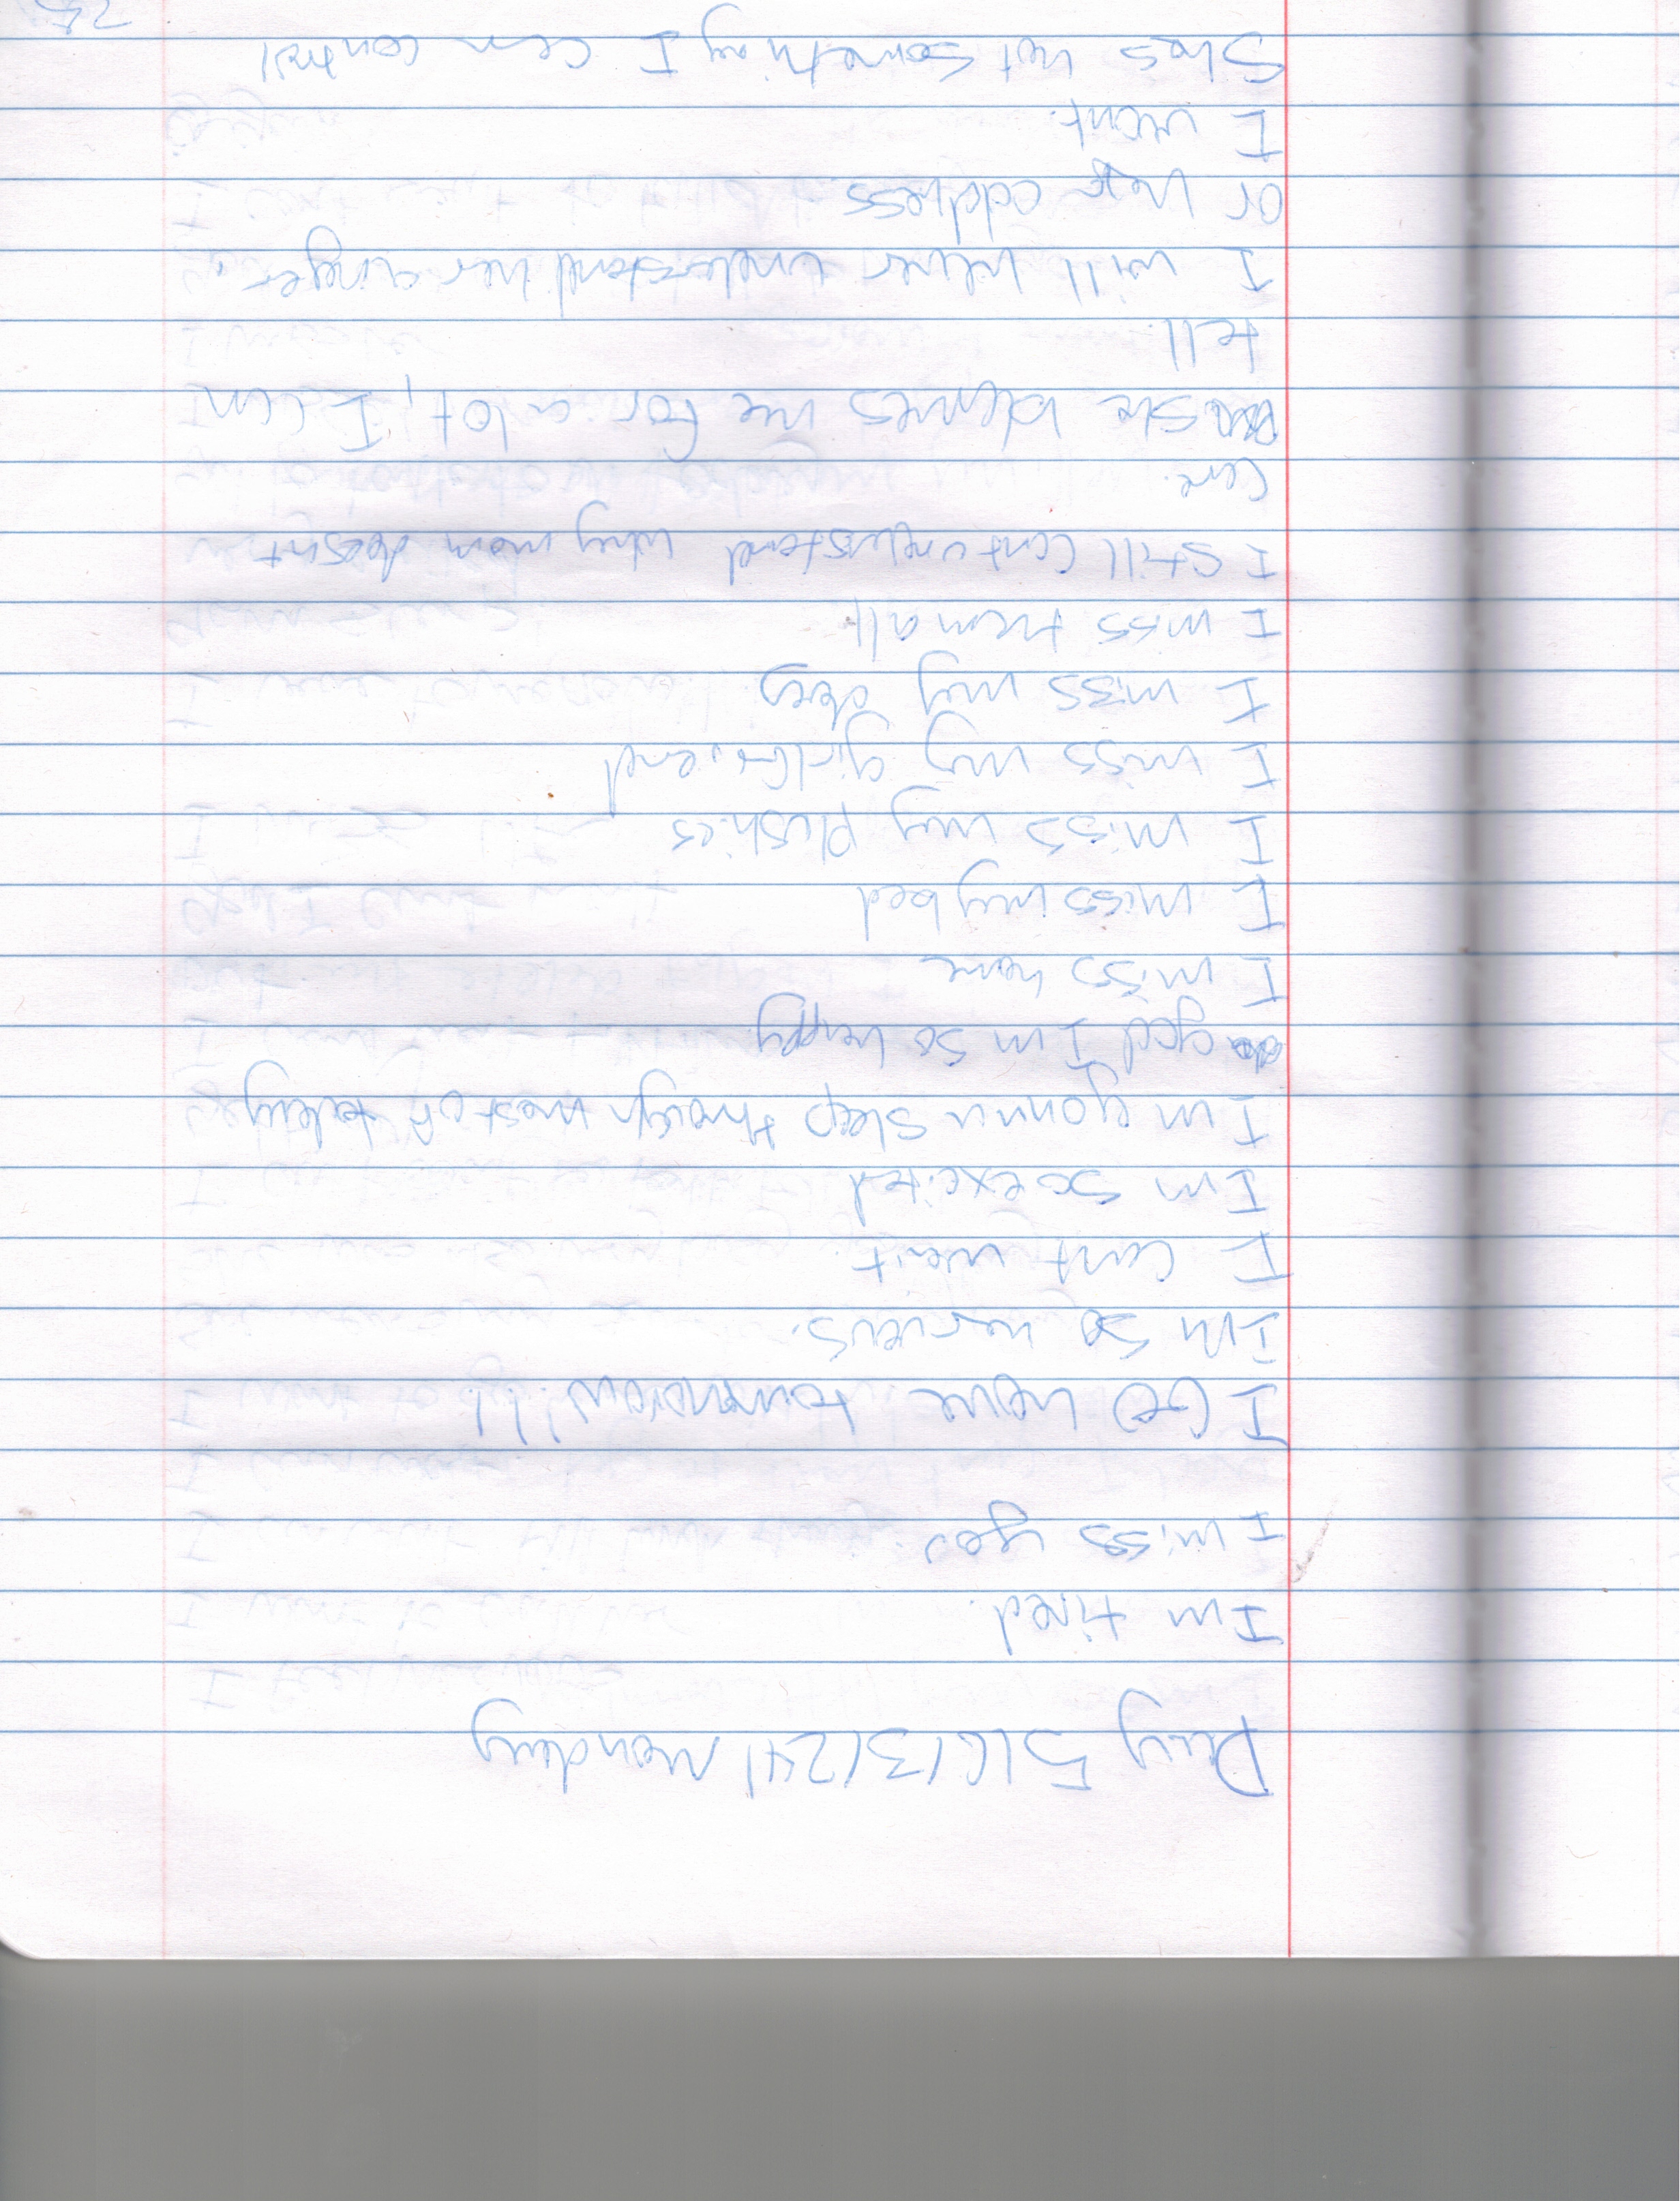 Day 5 | 6/3/24 | Monday
Im tired.
I miss you.
I GO home tommorow!!
Im so nervous.
I cant wait
Im so excited
Im gonna sleep through most of today
god Im so happy
I miss home
I miss my bed
I miss my plushies
I miss my girlfriend
I miss my dog
I miss them all
I still cant understand why mom doesnt
care.
She blames me for a lot, I can
tell.
I will never understand her anger,
or her address
I wont.
Shes not something I can control